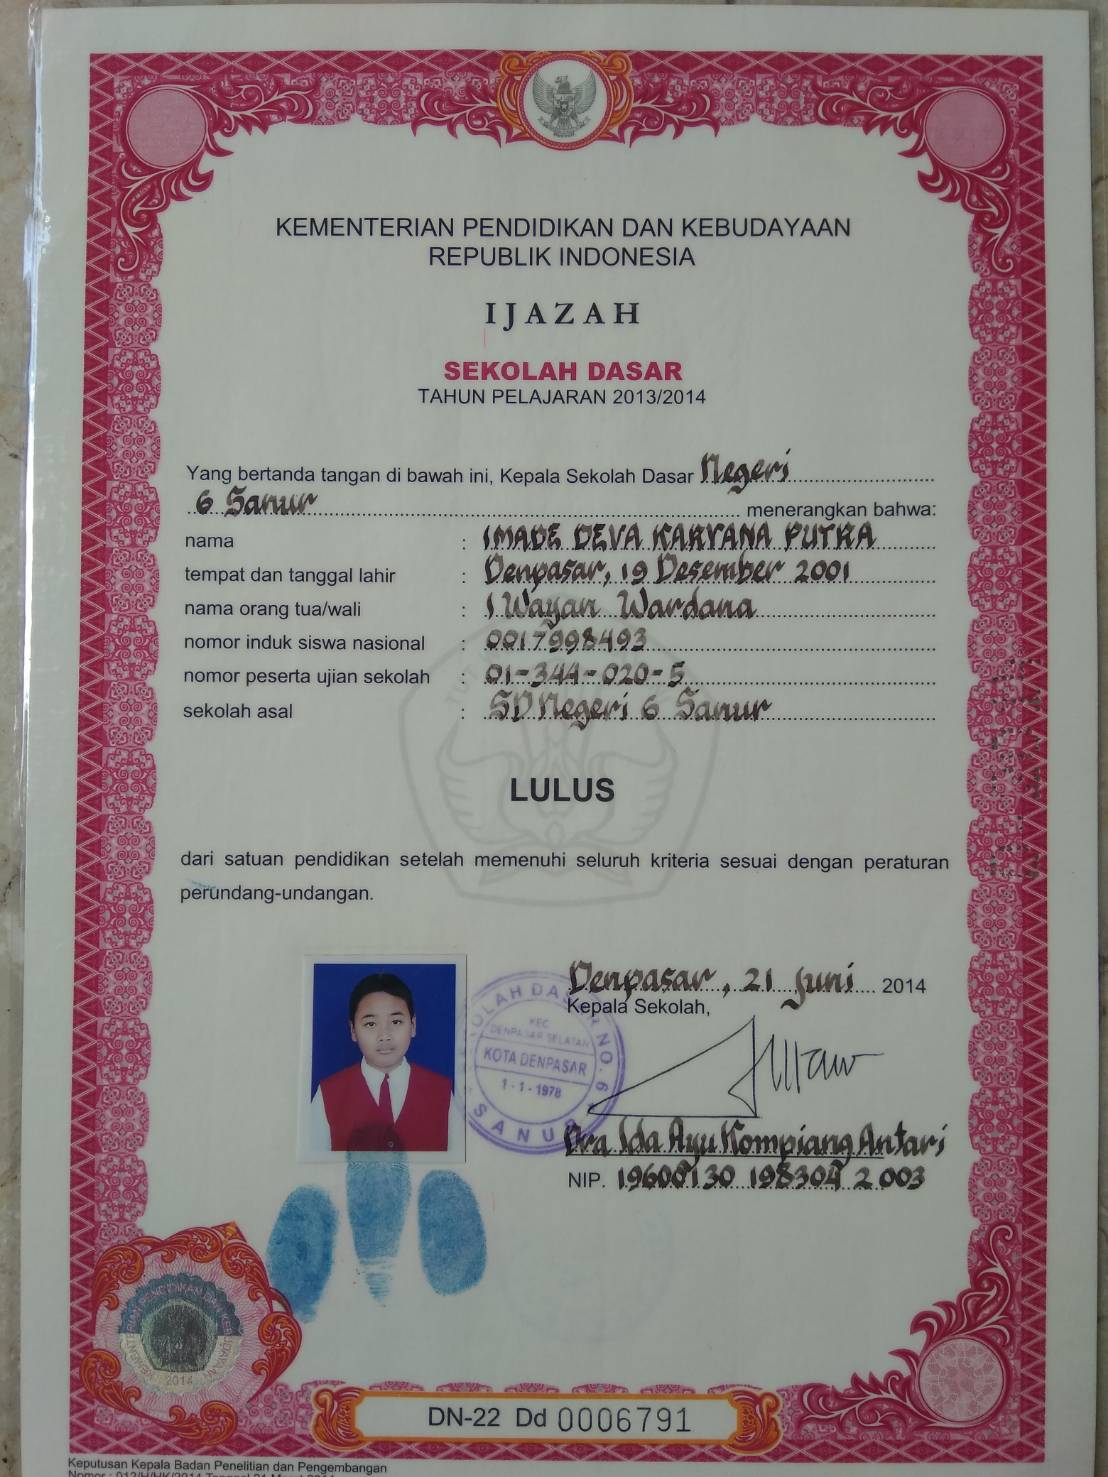 KEMENTERIAN PENDIDIKAN DAN KEBUDAYAAN
REPUBLIK INDONESIA
IJAZAH
SEKOLAH DASAR
TAHUN PELAJARAN 2013/2014
Yang bertanda tangan di bawah ini, Kepala Sekolah Dasar Negeri
6 Sanur menerangkan bahwa:
nama : I MADE DEVA KARYANA PUTRA
tempat dan tanggal lahir : Denpasar, 19 Desember 2001
nama orang tua/wali : I Wayan Wardana
nomor induk siswa nasional : 0017998493
nomor peserta ujian sekolah : 01-344-020-5
sekolah asal : SD Negeri 6 Sanur
LULUS
dari satuan pendidikan setelah memenuhi seluruh kriteria sesuai dengan peraturan
perundang-undangan.
Denpasar, 21 Juni 2014
Kepala Sekolah,
KEC
DENPASAR SELATAN
KOTA DENPASAR
1-1-1978
SANUR
Dra Ida Ayu Kompiang Antari
NIP. 198304 2 003
2014
DN-22 Dd 0006791
Keputusan Kepala Badan Penelitian dan Pengembangan